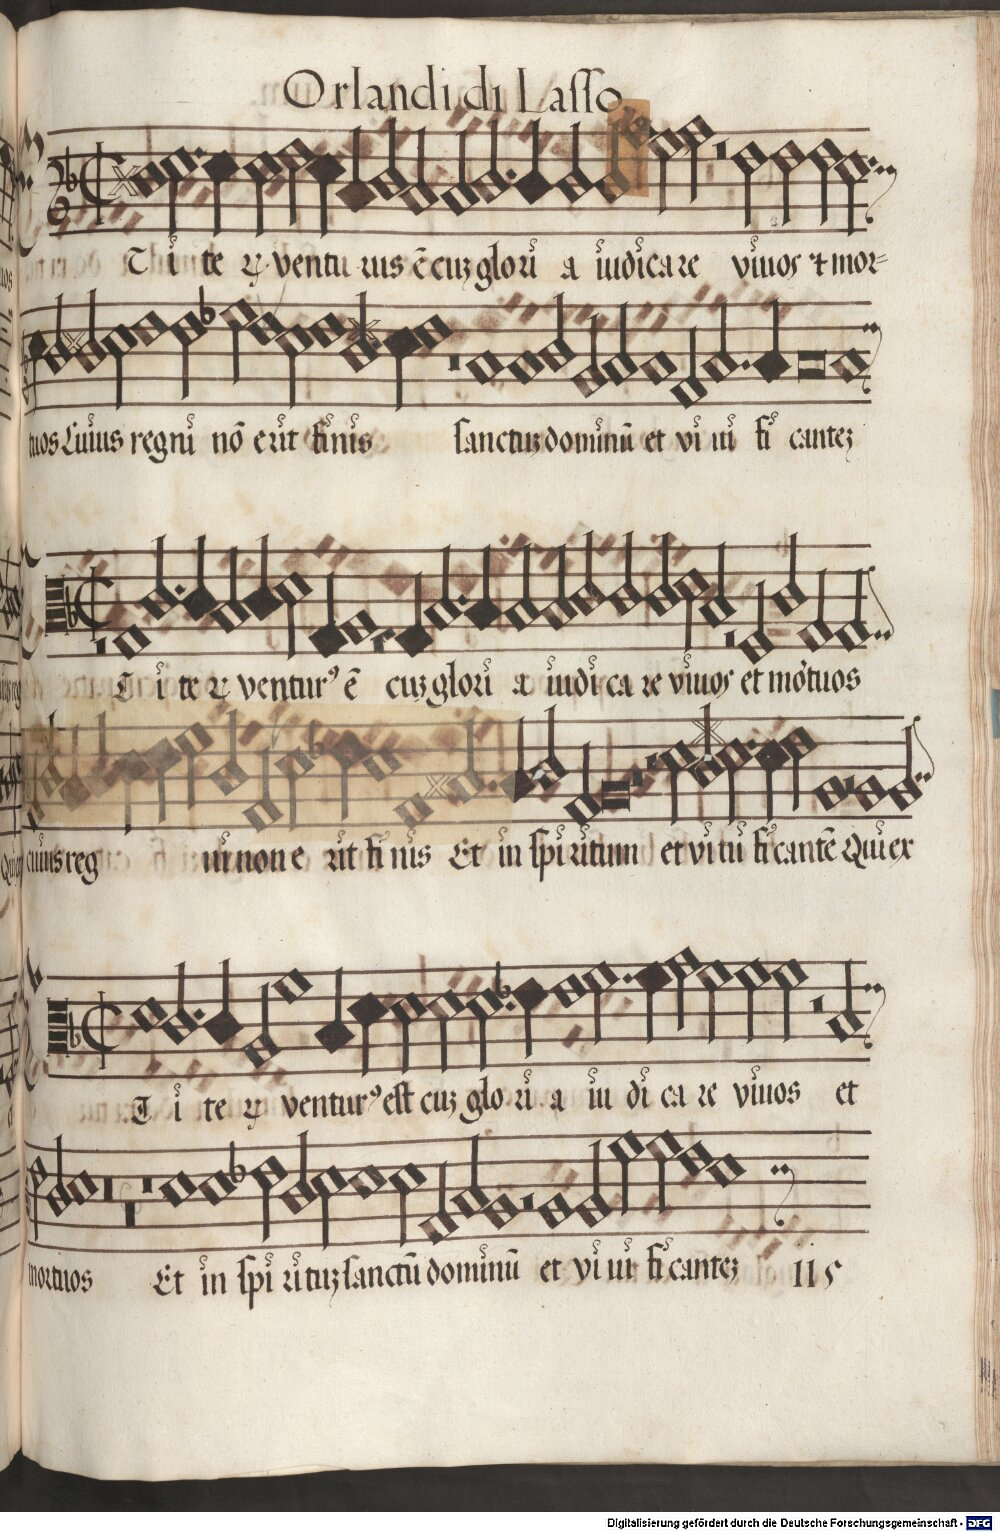 Orlandi di Lasso
Et i te rū ventu rus ē cuz glori a iudicare viuos et mor-
tuos Cuius regni nō erit finis sanctuz dominū et vi ui fi cantez
Et i te rū venturꝰ ē cuz glori a iudi ca re viuos et mortuos
cuius reg ni non e rit fi nis Et in spi ritum et vi ui fi cantē Qui ex
Et i te rū venturꝰ est cuz glo ri a iu di ca re viuos et
mortuos Et in spi ri tuz sanctū dominū et vi ui fi cantez 115
Digitalisierung gefördert durch die Deutsche Forschungsgemeinschaft - DFG